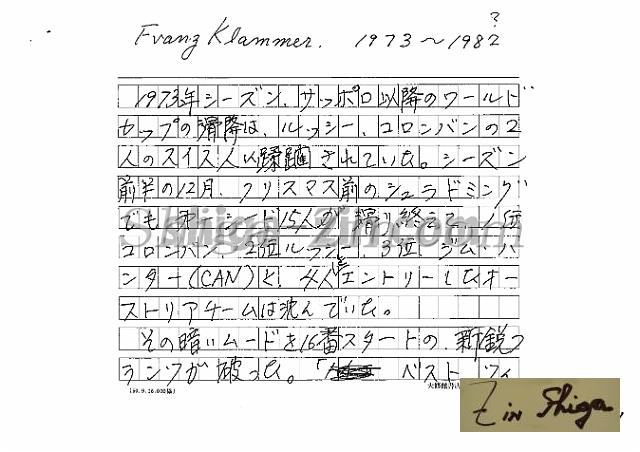 ?
Franz Klammer. 1973〜1982
1973年シーズン、サッポロ以降のワールド
カップの滑降は、ルッシー、コロンバンの2
人のスイス人に蹂躙されていた。シーズン
前半の12月、クリスマス前のシュラドミング
でも第一シード15人が滑り終えて、1位
コロンバン、2位ルッシー、3位ジム・ハ
ンター(CAN)と、4人エントリーしたオー
ストリアチームは沈んでいた。
その暗いムードを16番スタートの、新鋭フ
ランツが破った。「ベストウィ
Shiiga Zin.comm
Z in Shiga,